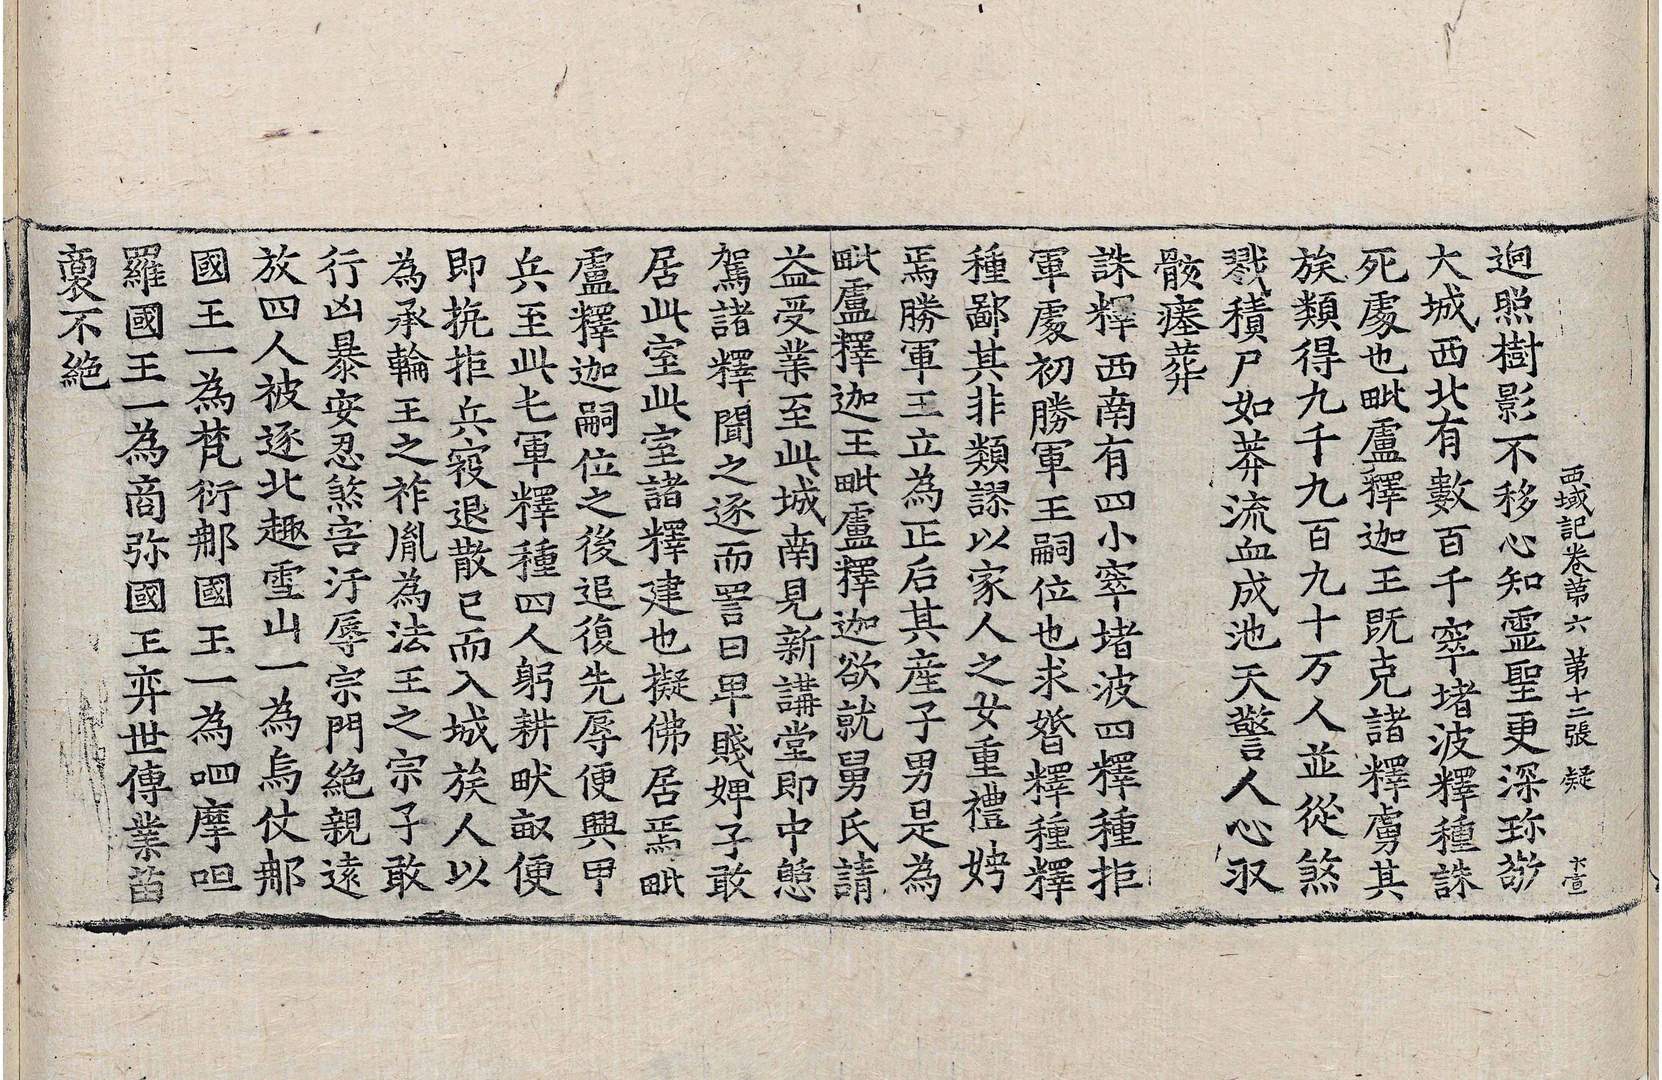 西域記卷苐六 第十二張 疑 卞亶
迥照樹影不移心知靈聖更深珎敬
大城西北有數百千窣堵波釋種誅
死處也毗盧釋迦王旣克諸釋虜其
族類得九千九百九十万人並從煞
戮積尸如莽流血成池天警人心収
骸瘞葬
誅釋西南有四小窣堵波四釋種拒
軍處初勝軍王嗣位也求婚釋種釋
種鄙其非類謬以家人之女重禮娉
焉勝軍王立為正后其産子男是為
毗盧釋迦王毗盧釋迦欲就舅氏請
益受業至此城南見新講堂即中憩
駕諸釋聞之逐而詈曰卑賤婢子敢
居此室此室諸釋建也擬佛居焉毗
盧釋迦嗣位之後追復先辱便興甲
兵至此屯軍釋種四人躬耕畎畝便
即抗拒兵寇退散已而入城族人以
為承輪王之祚胤為法王之宗子敢
行凶暴安忍煞害汙辱宗門絶親遠
放四人被逐北趣雪山一為烏仗那
國王一為梵衍那國王一為呬摩呾
羅國王一為商弥國王弈世傳業苗
裔不絶